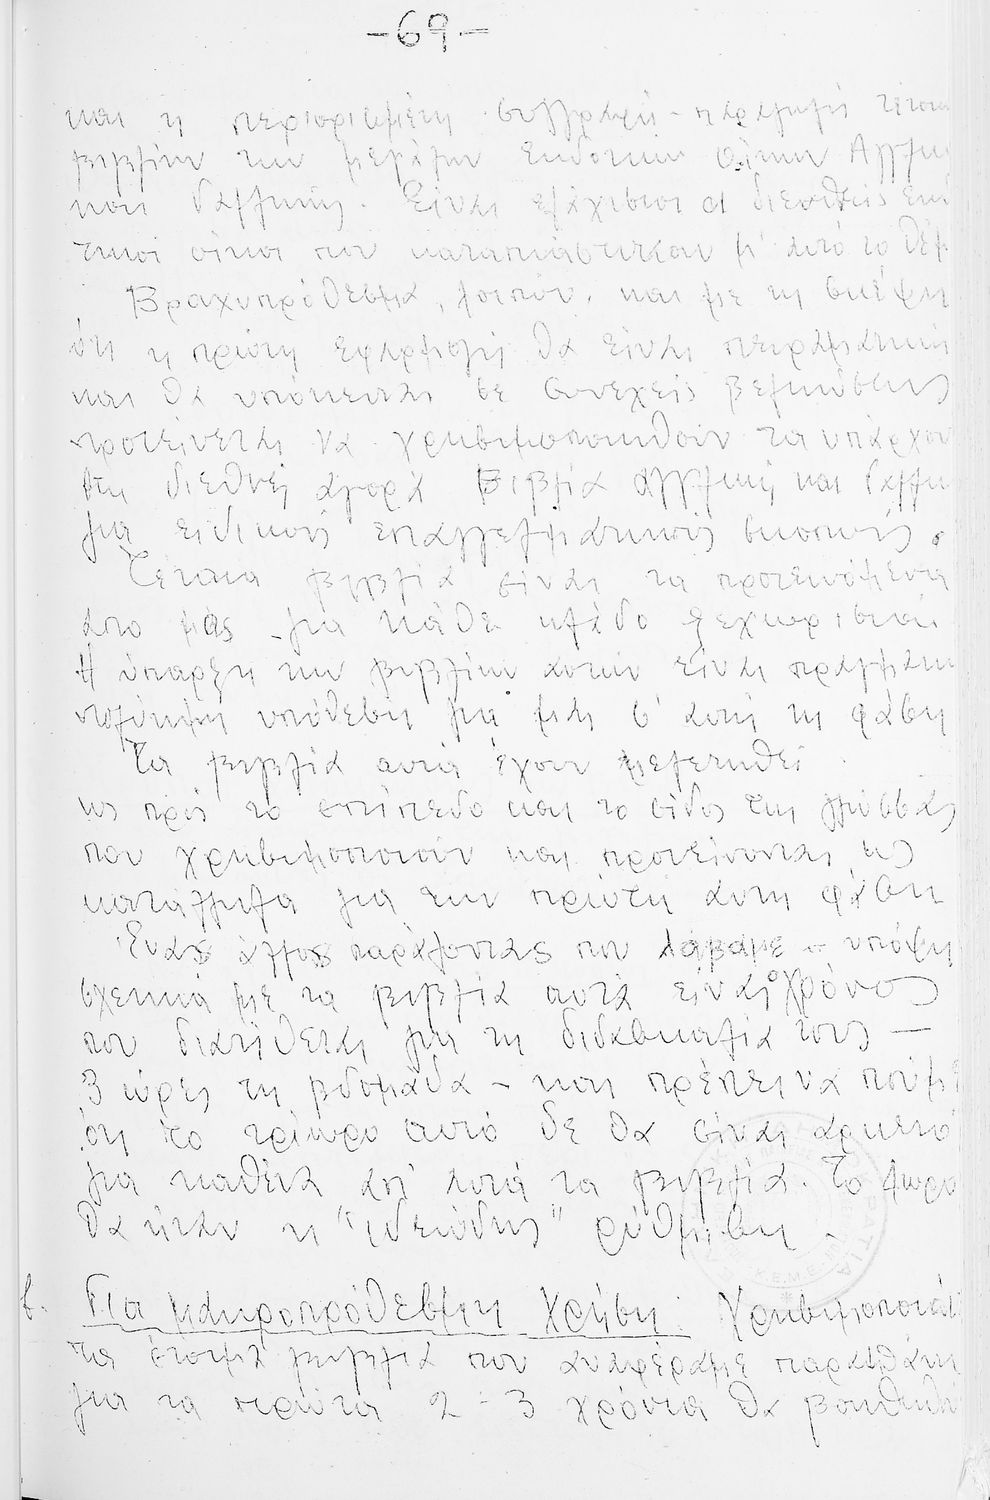 -69-
και η περιορισμένη συγγραφή - παραγωγή τέτοιω
βιβλίων των μεγάλων εκδοτικών οίκων Αγγλικ
και Γαλλικής. Είναι ελάχιστοι οι διεθνείς εκδ
τικοί οίκοι που καταπιάστηκαν μ' αυτό το θέμ
Βραχυπρόθεσμα, λοιπόν, και με τη σκέψη
ότι η πρώτη εφαρμογή θα είναι πειραματική
και θα υπόκειται σε συνεχείς βελτιώσεις
προτείνεται να χρησιμοποιηθούν τα υπάρχον
στη διεθνή αγορά Βιβλία αγγλικής και Γαλλικ
για ειδικούς επαγγελματικούς σκοπούς.
Τέτοια βιβλία είναι τα προτεινόμενα
απο μας για κάθε κλάδο ξεχωριστά.
Η ύπαρξη των βιβλίων αυτών είναι πραγματικ
πολύτιμη υπόθεση για μας σ' αυτή τη φάση
Τα βιβλία αυτά έχουν μελετηθεί
ως πρός το επίπεδο και το είδος της γλώσσας
που χρησιμοποιούν και προτείνονται ως
κατάλληλα για την πρώτη αυτή φάση
Ένας άλλος παράγοντας που λάβαμε υπόψη
σχετικά με τα βιβλία αυτά είναι ο χρόνος
που διατίθεται για τη διδασκαλία τους —
3 ώρες τη βδομάδα - και πρέπει να πούμε
ότι το τρίωρο αυτό δε θα είναι αρκετό
για καθένα απ' αυτά τα βιβλία. Το 4ωρο
θα ήταν η "ιδεώδης" ρύθμιση.
β. Για μακροπρόθεσμη χρήση: Χρησιμοποιώ
τα έτοιμα βιβλία που αναφέραμε παραπάνω
για τα πρώτα 2-3 χρόνια θα βοηθηθού
Κ.Ε.Μ.Ε.